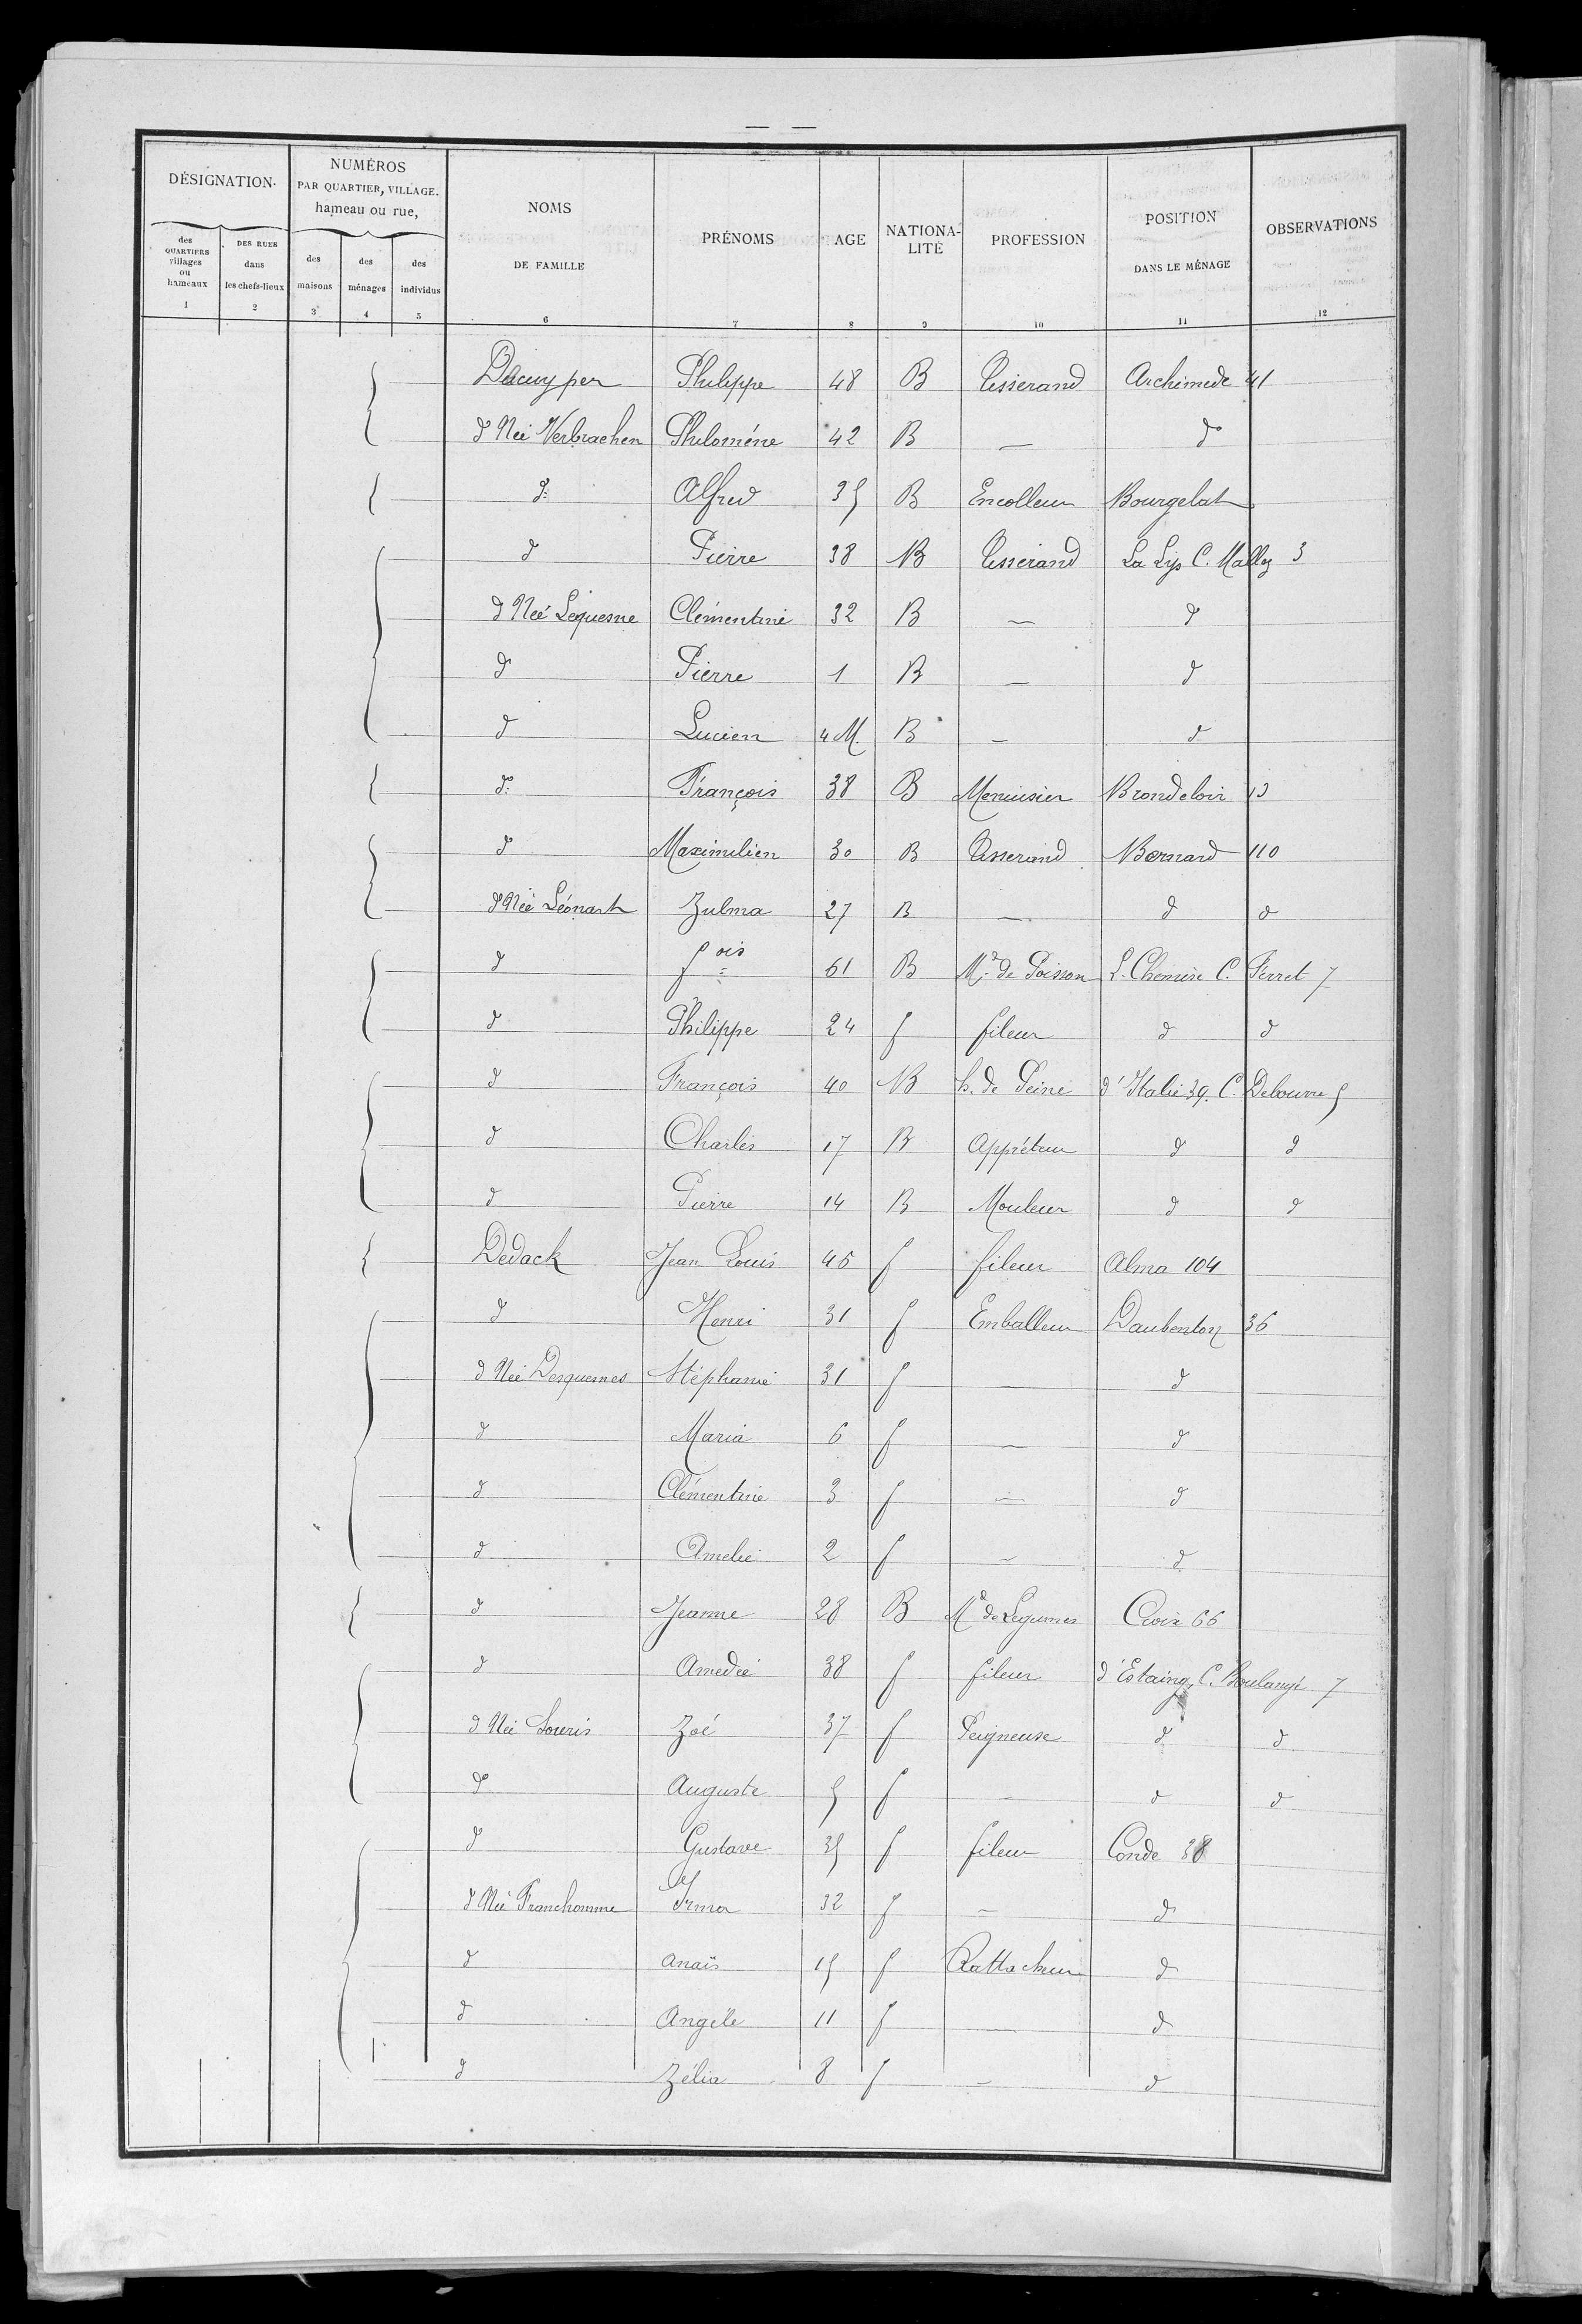 DÉSIGNATION.
NUMÉROS
PAR QUARTIER, VILLAGE.
hameau ou rue,
NOMS
DE FAMILLE
PRÉNOMS
AGE
NATIONA-
LITÉ
PROFESSION
POSITION
DANS LE MÉNAGE
OBSERVATIONS
des
QUARTIERS
villages
ou
hameaux
DES RUES
dans
les chefs-lieux
des
maisons
des
ménages
des
individus
1 2 3 4 5 6 7 8 9 10 11 12
Decuyper Philippe 48 B Tisserand Archimede 41
d° Née Verbrachen Philoméne 42 B — d°
d° Alfred 35 B Encolleur Bourgelat
d Pierre 38 B Tisserand La Lys C. Malloz 3
d Née Lequesne Clémentine 32 B — d
d Pierre 1 B — d
d Lucien 4 M. B — d
d° François 38 B Menuisier Brondeloir 13
d Maximilien 30 B Tisserand Bernard 110
d Née Léonart Zulma 27 B — d d
d fois 61 B Md de Poisson L. Chemin C. Ferret 7
d Philippe 24 f fileur d d
d François 40 B h. de Peine d'Italie 39. C. Debouvre 5
d Charles 17 B Appréteur d d
d Pierre 14 B Mouleur d d
Dedack Jean Louis 45 f fileur Alma 104
d Henri 31 f Emballeur Daubenton 36
d Née Desquesnes Stéphanie 31 f — d
d Maria 6 f — d
d Clémentine 3 f — d
d Amelie 2 f — d
d Jeanne 28 B Md de Legumes Croix 66
d Amedée 38 f fileur d'Estaing, C. Boulangé 7
d Née Souris Zoé 37 f Peigneuse d d
d° Auguste 5 f — d d
d Gustave 35 f fileur Conde 38
d Née Franchomme Irma 32 f — d
d Anaïs 15 f Rattacheur d
d Angéle 11 f — d
d Zélia 8 f — d